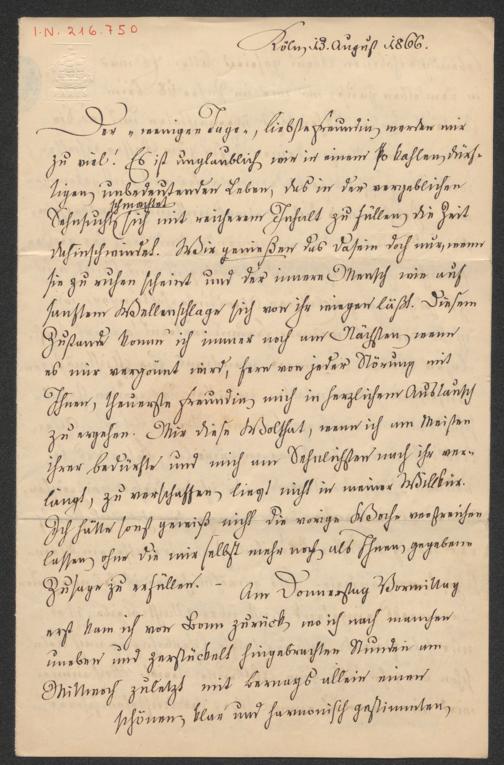 I.N. 216.750
Köln, 13. August 1866.
Der „wenigen Tage“, liebste Freundin, werden mir
zu viel! Es ist unglaublich wie in einem so kahlen, dürf-
tigen, unbedeutenden Leben, das in der vergeblichen
Sehnsucht schmachtet sich mit reicherem Inhalt zu füllen, die Zeit
dahinschwindet. Wir genießen das Dasein doch nur, wenn
sie zu ruhen scheint und der innere Mensch wie auf
sanftem Wellenschlage sich von ihr wiegen läßt. Diesem
Zustande komm' ich immer noch am Nächsten, wenn
es mir vergönnt wird, fern von jeder Störung mit
Ihnen, theuerste Freundin, mich in herzlichem Austausch
zu ergehen. Mir diese Wolthat, wenn ich am Meisten
ihrer bedürfte und mich am Sehnlichsten nach ihr ver-
langt, zu verschaffen, liegt nicht in meiner Willkür.
Ich hätte sonst gewiß nicht die vorige Woche verstreichen
lassen, ohne die mir selbst mehr noch, als Ihnen, gegebene
Zusage zu erfüllen. – Am Donnerstag Vormittag
erst kam ich von Bonn zurück, wo ich nach manchen
uneben und zerstückelt hingebrachten Stunden am
Mittwoch zuletzt mit Bernays allein einen
schönen, klar und harmonisch gestimmten,